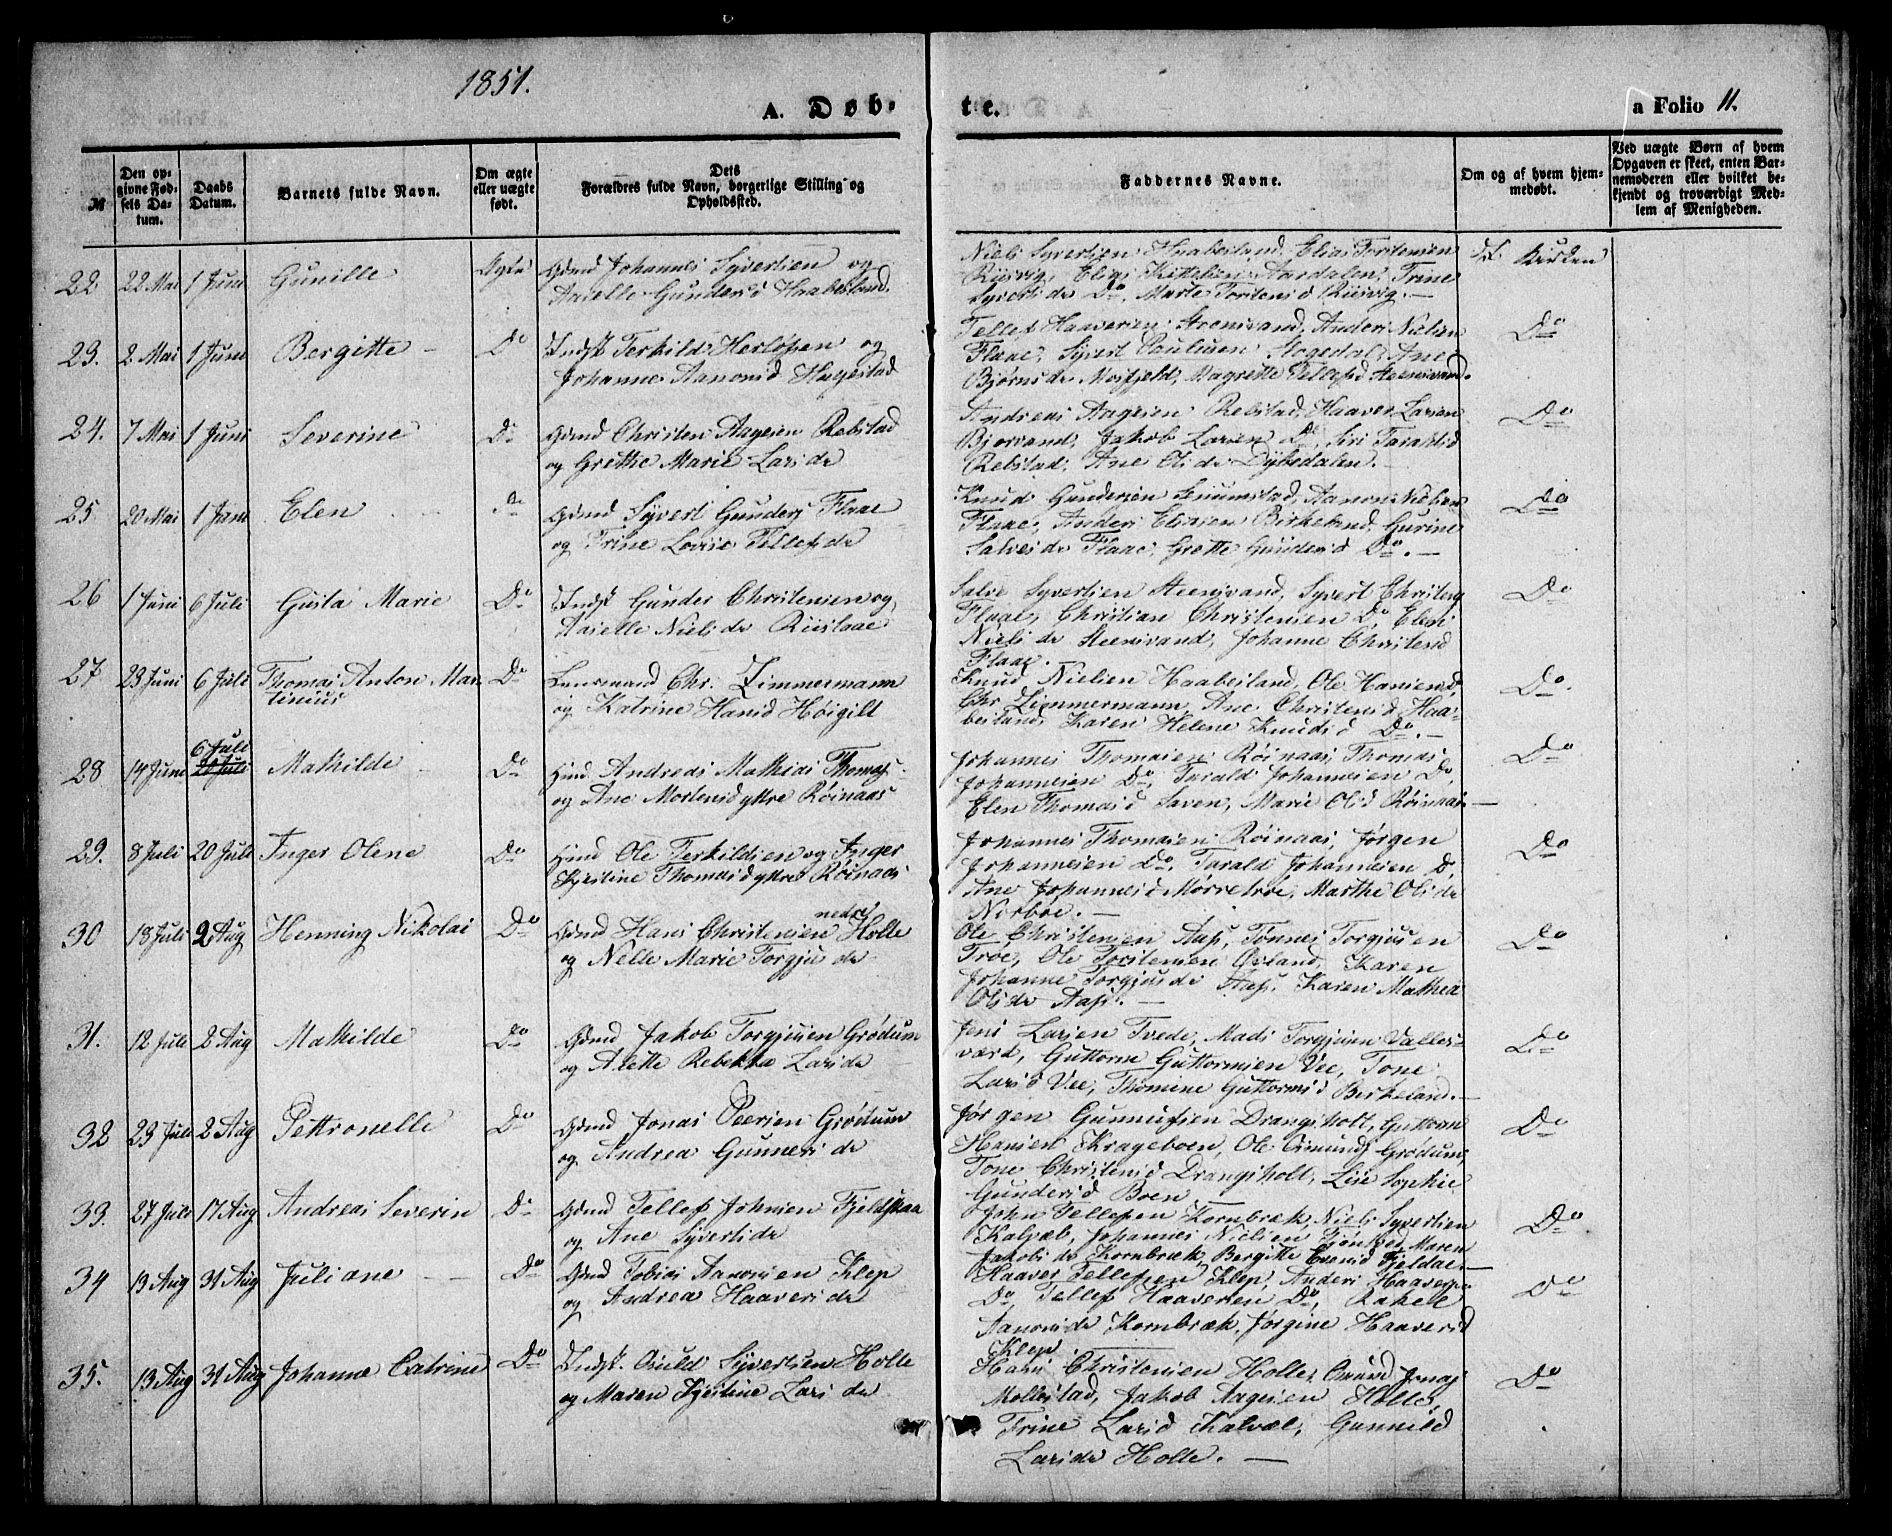 1851.
A. Døb-
te.
a Folio 11.
№
Den op-
givne Fød-
sels Da-
tum.
Daabs
Datum.
Barnets fulde Navn.
Om ægte
eller uægte
født.
Dets
Forældres fulde Navn, borgerlige Stilling og
Opholdssted.
Faddernes Navne.
Om og af hvem hjem-
medøbt.
Ved uægte Børn af hvem
Opgaven er skeet, enten Bar-
nemoderen eller hvilket be-
kjendt og troværdigt Med-
lem af Menigheden.
22 22 Mai 1 Juni Gunille Ægte Gdmd Johannes Syvertsen og
Aasille Gundersd Haabesland.
Niels Syvertsen Haabesland, Elias Torstensen
Riisvig, Elias Kittelsen Dardalen, Trine
Syvertsdr Do, Marte Torstensd Riisvig. —
I Kirken
23. 2 Mai 1 Juni Bergitte — Do Indst Terkild Herlofsen og
Johanne Aanonsd Hagestad
Tellef Haaversen Steensvand, Anders Nielsen
Flaae, Syvert Poulsen Stagedal, Ane
Bjørnsdr Mosfjeld, Magrette Tellefsd Steensvand.
Do
24. 7 Mai 1 Juni Severine Do Gdmd Christen Aagesen Rebstad
og Grethe Marie Larsdr
Andreas Aagesen Rebstad, Haaver Larsen
Bjorvand, Jakob Larsen Do, Siri Taraldsd
Rebstad, Ane Olsdr Dybedalen. —
Do
25 20 Mai 1 Juni Elen Do Gdmd Syvert Gunders Flaae
og Trine Lovise Tellefsdr
Knud Gundersen Aanon Nielsen
Flaae, Anders Elissen Birkeland, Gurine
Salvesdr Flaae, Grette Gundersd Do. —
Do
26 1 Juni 6 Juli Gusta Marie Do Indst Gunder Christensen og
Aasille Nielsdr Riislaae
Salve Syvertsen Steensvand, Syvert Christens
Flaae, Christian Christensen Do, Elen
Nielsdr Steensvand, Johanne Christensd
Flaae.
Do
27 23 Juni 6 Juli Thomas Anton Mar
tinius Do Lensmand Chr. Zimmermann
og Katrine Hansd Høigilt
Knud Nielsen Haabesland, Ole Hansen Do,
Chr Zimmermann, Ane Christensd Haa-
besland, Karen Helene Knudsd Do. —
Do.
28 14 Juni 6 Juli 20 Juli Mathilde Do Hmd Andreas Mathias Thomas
og Ane Mortensdytter Røinaas
Johannes Thomasen Røinaas, Thomas
Johannesen Do, Tarald Johannesen Do,
Elen Thomasd Saven, Marie Olsd Røinaas —
Do
29. 8 Juli 20 Juli Inger Olene Do Hmd Ole Terkildsen og Inger
Kjestine Thomasdytter Røinaas
Johannes Thomasen Røinaas, Jørgen
Johannesen Do, Tarald Johannesen Do,
Ane Johannesd Mørretrøe, Marthe Olsdr
Norbøe. —
Do
30 18 Juli 2 Aug Henning Nikolai Do Gdmd Hans Christensen nedre Holle
og Nelle Marie Torgjusdr
Ole Christensen Aas, Tønnes Torgjusen
Troe, Ole Torstensen Øvland, Karen
Johanne Torgjusdr Aas, Karen Mathea
Olsdr Aas. —
Do
31. 12 Juli 2 Aug Mathilde Do Gdmd Jakob Torgjusen Grødum
og Alette Rebekka Larsdr
Jens Larsen Tvede, Mads Torgjusen Valles-
værd, Guttorm Guttormsen Vee, Tone
Larsd Vee, Thomine Guttormsd Berkeland. —
Do
32 23 Juli 2 Aug Pettronelle Do Gdmd Jonas Peersen Grødum
og Andrea Gunnersdr
Jørgen Gunnufsen Drangsholt, Guttorm
Hansen Krageboen, Ole Osmunds Grødum,
Tone Christensd Drangsholt, Lise Sophie
Gundersd Boen
Do
33. 27 Juli 17 Aug Andreas Severin Do Gdmd Tellef Johnsen Fjeldskaa
og Ane Syvertsdr
John Tellefsen Kornbræk, Niels Syvertsen
Kalvæb, Johannes Nielsen Maren
Jakobsdr Kornbræk, Bergitte Evensd Fjeldaa —
Do
34 13 Aug 31 Aug Juliane — Do Gdmd Tobias Aanonsen Klep
og Andrea Haaversdr
Haaver Tellefsen Klep, Anders Haaversen
Do, Tellef Haaversen Do, Rakel
Aanonsdr Kornbræk, Jørgine Haaversd
Klep.
Do
35. 13 Aug 31 Aug Johanne Catrine Do Indst. Osuld Syvertsen Holle
og Maren Kjestine Larsdr
Hans Christensen Holle, Omund Jonas
Mollestad, Jakob Aagesen Holle,
Trine Larsd Kalvæb, Gunnild
Larsdr Holle. —
Do